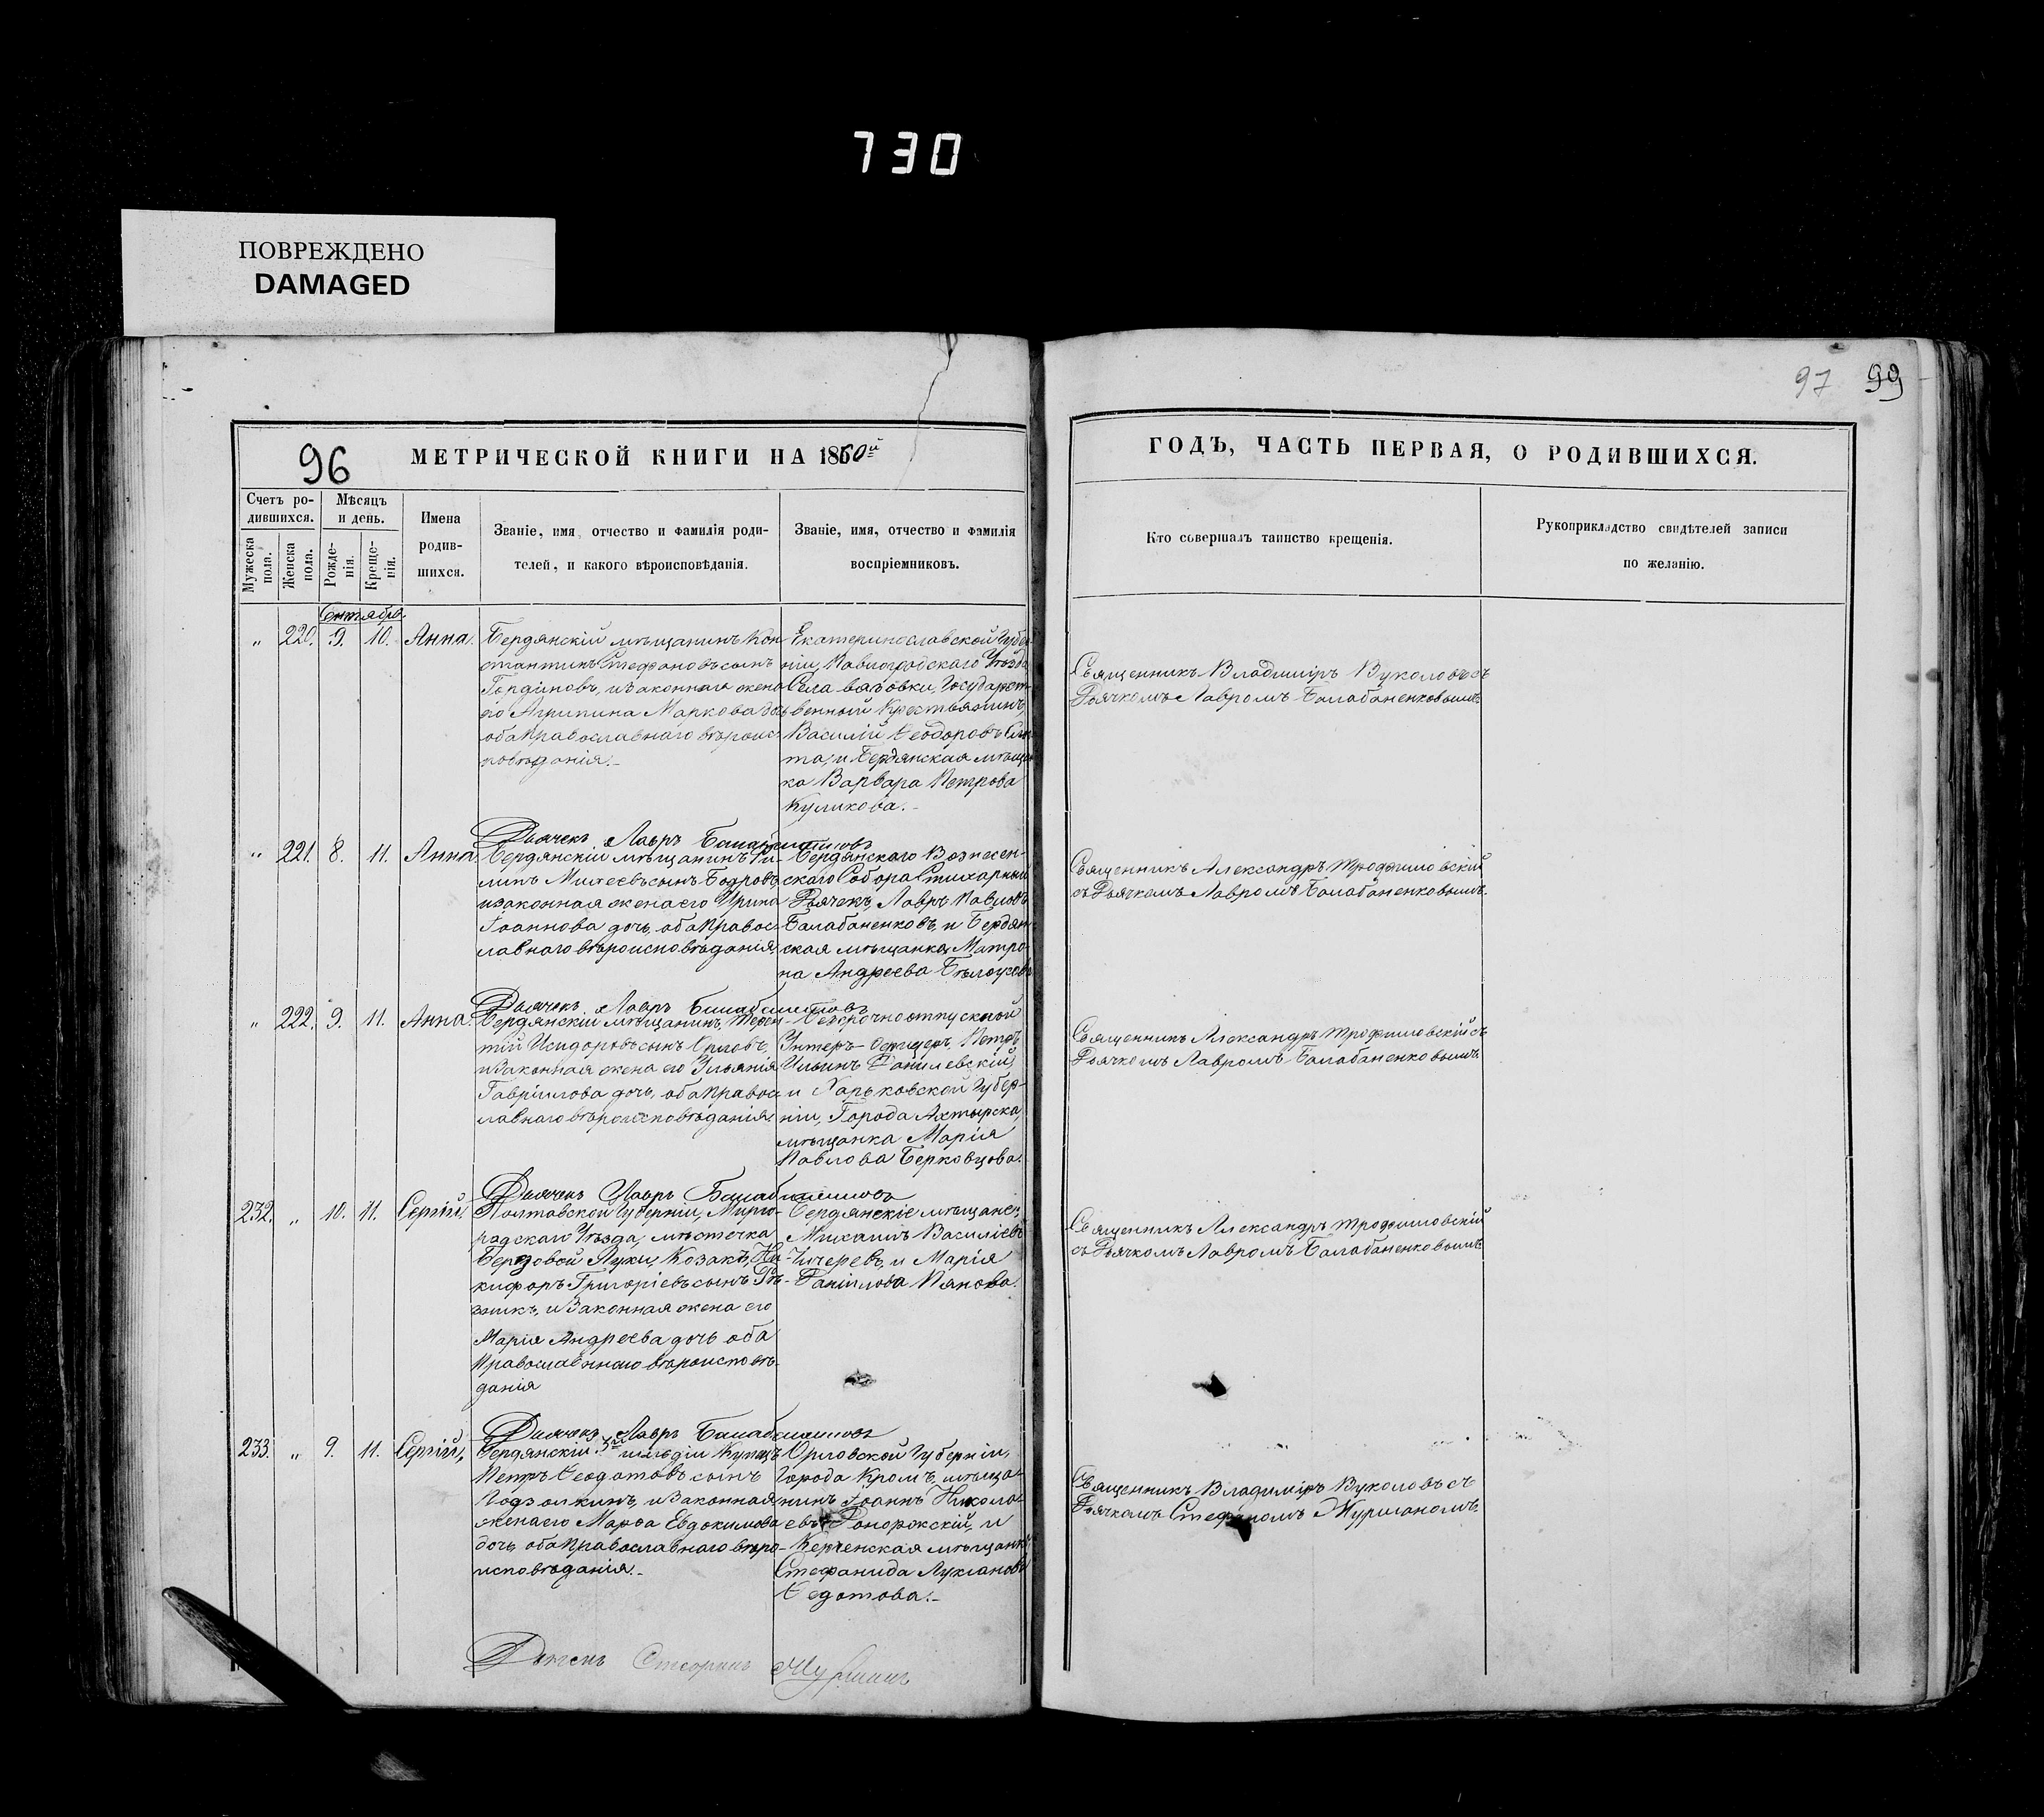 730
ПОВРЕЖДЕНО
DAMAGED
97 99
96 МЕТРИЧЕСКОЙ КНИГИ НА 1860й
ГОДЪ, ЧАСТЬ ПЕРВАЯ, О РОДИВШИХСЯ.
Счетъ ро-
дившихся.
Мѣсяцъ
и день.
Мужеска
пола.
Женска
пола.
Рожде-
нія.
Креще-
нія.
Имена
родив-
шихся.
Званіе, имя, отчество и фамилія роди-
телей, и какого вѣроисповѣданія.
Званіе, имя, отчество и фамилія
воспріемниковъ.
Кто совершалъ таинство крещенія.
Рукоприкладство свидѣтелей записи
по желанію.
Сентября
„ 220. 9. 10. Анна.
Бердянскій мѣщанинъ Кон-
стантинъ Стефановъ сынъ
законная жена
его Агрипина Маркова дочь
оба Православнаго вѣроис-
повѣданія.
Екатеринославской Губер-
ніи, Павлоградскаго Уѣзда
Села Государст-
венный Крестьянинъ,
Василій Ѳеодоровъ
и Бердянская мѣщан-
ка Варвара Петрова
Куликова.
Священникъ Владиміръ Вуколовъ съ
Дьячкомъ Лавромъ Балабаненковымъ.
Дьячекъ Лавръ Балабаненковъ
„ 221. 8. 11. Анна.
Бердянскій мѣщанинъ
Михеевъ сынъ Бодровъ,
и законная жена его Ирина
Іоаннова дочь, оба Правос-
лавнаго вѣроисповѣданія.
Бердянскаго Вознесен-
скаго Собора Стихарный
Дьячекъ, Лавръ Павловъ
Балабаненковъ, и Бердян-
ская мѣщанка Матро-
на Андреева
Священникъ Александръ Трофимовскій
съ Дьячкомъ Лавромъ Балабаненковымъ.
Дьячекъ Лавръ Балабаненковъ
„ 222. 9. 11. Анна.
Бердянскій мѣщанинъ, Терен-
тій Исидоровъ сынъ Орловъ,
и законная жена его
Гавріилова дочь, оба Правос-
лавнаго вѣроисповѣданія.
Безсрочноотпускной
Унтеръ-Офицеръ, Петръ
Ильинъ Данилевскій,
и Харьковской Губер-
ніи, Города Ахтырска,
мѣщанка Марія
Павлова Берковцова.
Священникъ Александръ Трофимовскій съ
Дьячкомъ Лавромъ Балабаненковымъ.
Дьячекъ Лавръ Балабаненковъ
232. „ 10. 11. Сергій.
Полтавской Губерніи, Мирго-
радскаго Уѣзда, мѣстечка
Березовой Луки, Козакъ, Ни-
кифоръ Григоріевъ сынъ Рѣ-
зникъ, и законная жена его
Марія Андреева дочь оба
Православнаго вѣроисповѣ-
данія
Бердянскіе мѣщане,
Михаилъ Василіевъ
Чичеревъ, и Марія
Даніилова Панова.
Священникъ Александръ Трофимовскій
съ Дьячкомъ Лавромъ Балабаненковымъ.
Дьячекъ Лавръ Балабаненковъ
233. „ 9. 11. Сергій.
Бердянскій 3й гильдіи Купецъ
Петръ Ѳеодотовъ сынъ
и законная
жена его Марѳа Евдокимова
дочь, оба Православнаго вѣро-
исповѣданія.
Орловской Губерніи,
Города Кромъ, мѣща-
нинъ Іоаннъ Никола-
евъ и
Керченская мѣщанка
Стефанида Лукіанова
Ѳедотова.
Священникъ Владиміръ Вуколовъ съ
Дьячкомъ Стефаномъ Журманомъ.
Дьячекъ Стефанъ Журманъ